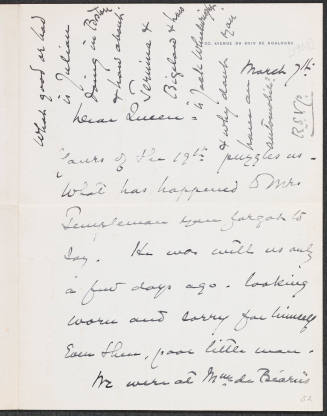 AVENUE DU BOIS DE BOULOGNE
March 7th
Dear Queen -
Yours of the 19th puzzles us -
What has happened to Mrs
Templeman you forgot to
say. He was with us only
a few days ago - looking
worn and sorry for himself
Even then, poor little man.
We were at Mme de Béarn's
What good or bad
is Julian
doing in
& how about
Termina &
Bigelow &
is Jack
& why dont you
have an
automobile?
R.S.V.P.